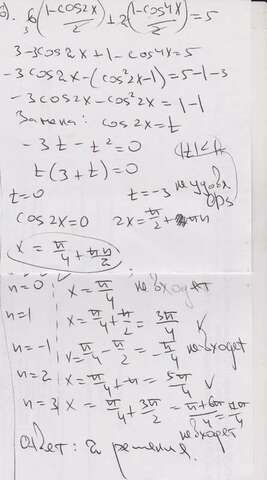 6(1-cos2x/2)+2(1-cos4x/2)=5
3-3cos2x+1-cos4x=5
-3cos2x-(cos²2x-1)=5-1-3
-3cos2x-cos²2x=1-1
Замена: cos2x=t
-3t-t²=0
t(3+t)=0
t=0 t=-3 не удовл
cos2x=0 2x=π/2+πn
x=π/4+πn/2
n=0 x=π/4 не входит
n=1 x=π/4+π/2=3π/4 V
n=-1 x=π/4-π/2=-π/4 не входит
n=2 x=π/4+π=5π/4 V
n=3 x=π/4+3π/2=π+6π/4=7π/4
не входит
Ответ: 2 решения.